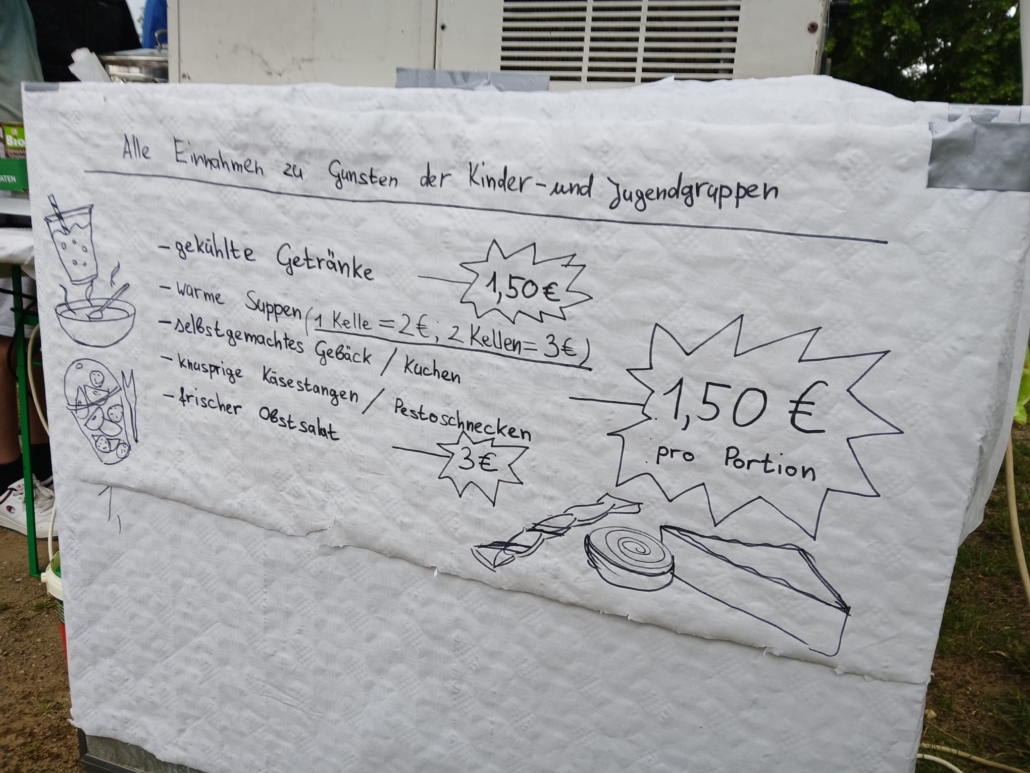 Alle Einnahmen zu Gunsten der Kinder- und Jugendgruppen
- gekühlte Getränke 1,50 €
- warme Suppen (1 Kelle = 2 €; 2 Kellen = 3 €)
- selbstgemachtes Gebäck / Kuchen
- knusprige Käsestangen / Pestoschnecken
1,50 €
pro Portion
- frischer Obstsalat 3 €
1,
Bio